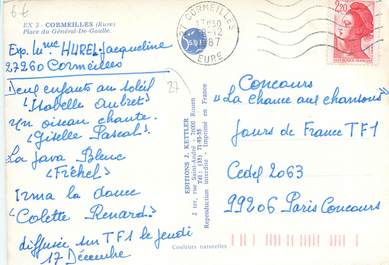 6€
EX 3 - CORMEILLES (Eure)
Place du Général-De-Gaulle.
27 CORMEILLES
17H30
-12
87
EURE
2,20
Exp. Mme HUREL Jacqueline
27260 Cormeilles
Deux enfants au soleil
"Isabelle Aubret"
Un oiseau chante.
"Giselle Pascal"
La Java Bleue
"Fréhel"
Irma la douce
"Colette Renard"
diffusée sur TF1 le jeudi
17 Décembre
27
EDITIONS J. KETTLER
2 ter, rue Saint-André - 76000 Rouen
Reproduction interdite - Imprimé en France
Couleurs naturelles
Concours
"La chance aux chansons"
Jours de France TF1
Cedex 2063
99206 Paris Concours